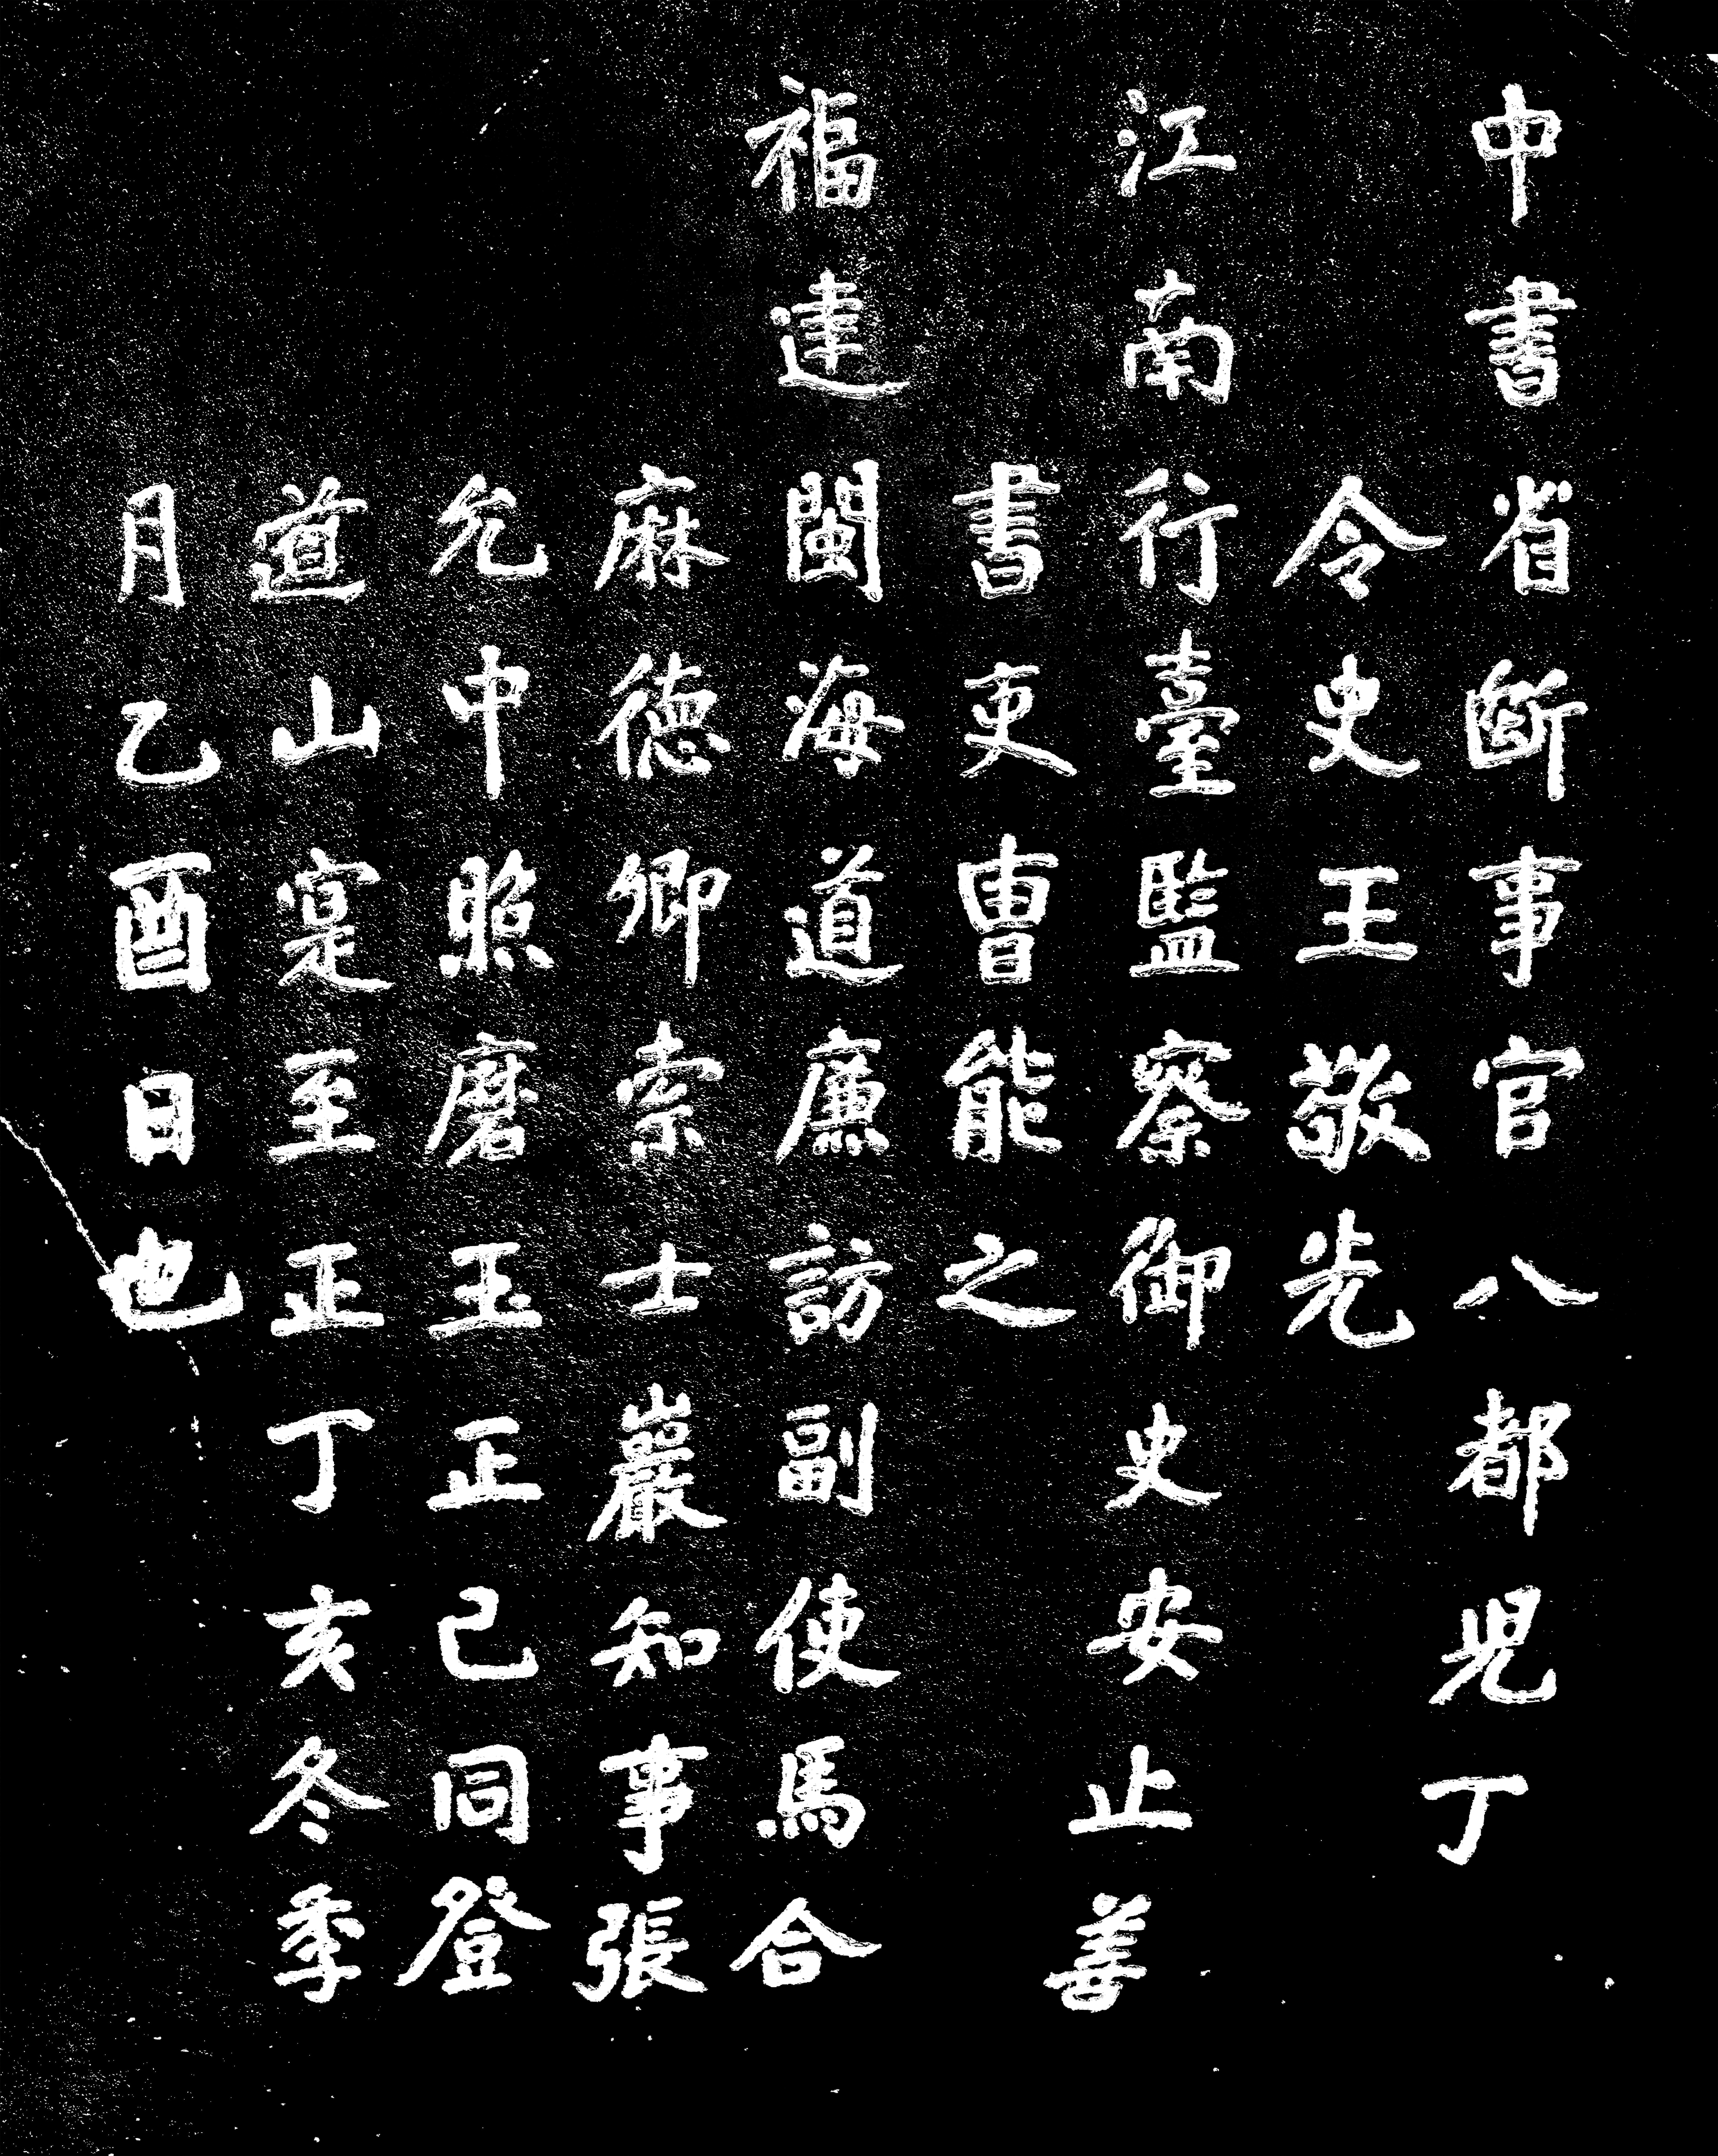 中書省斷事官八都児丁
令史王敬先
江南行臺監察御史安止善
書吏曹能之
福建閩海道廉訪副使馬合
麻德卿索士巖知事張
允中照磨王正己同登
道山寔至正丁亥冬季
月乙酉日也